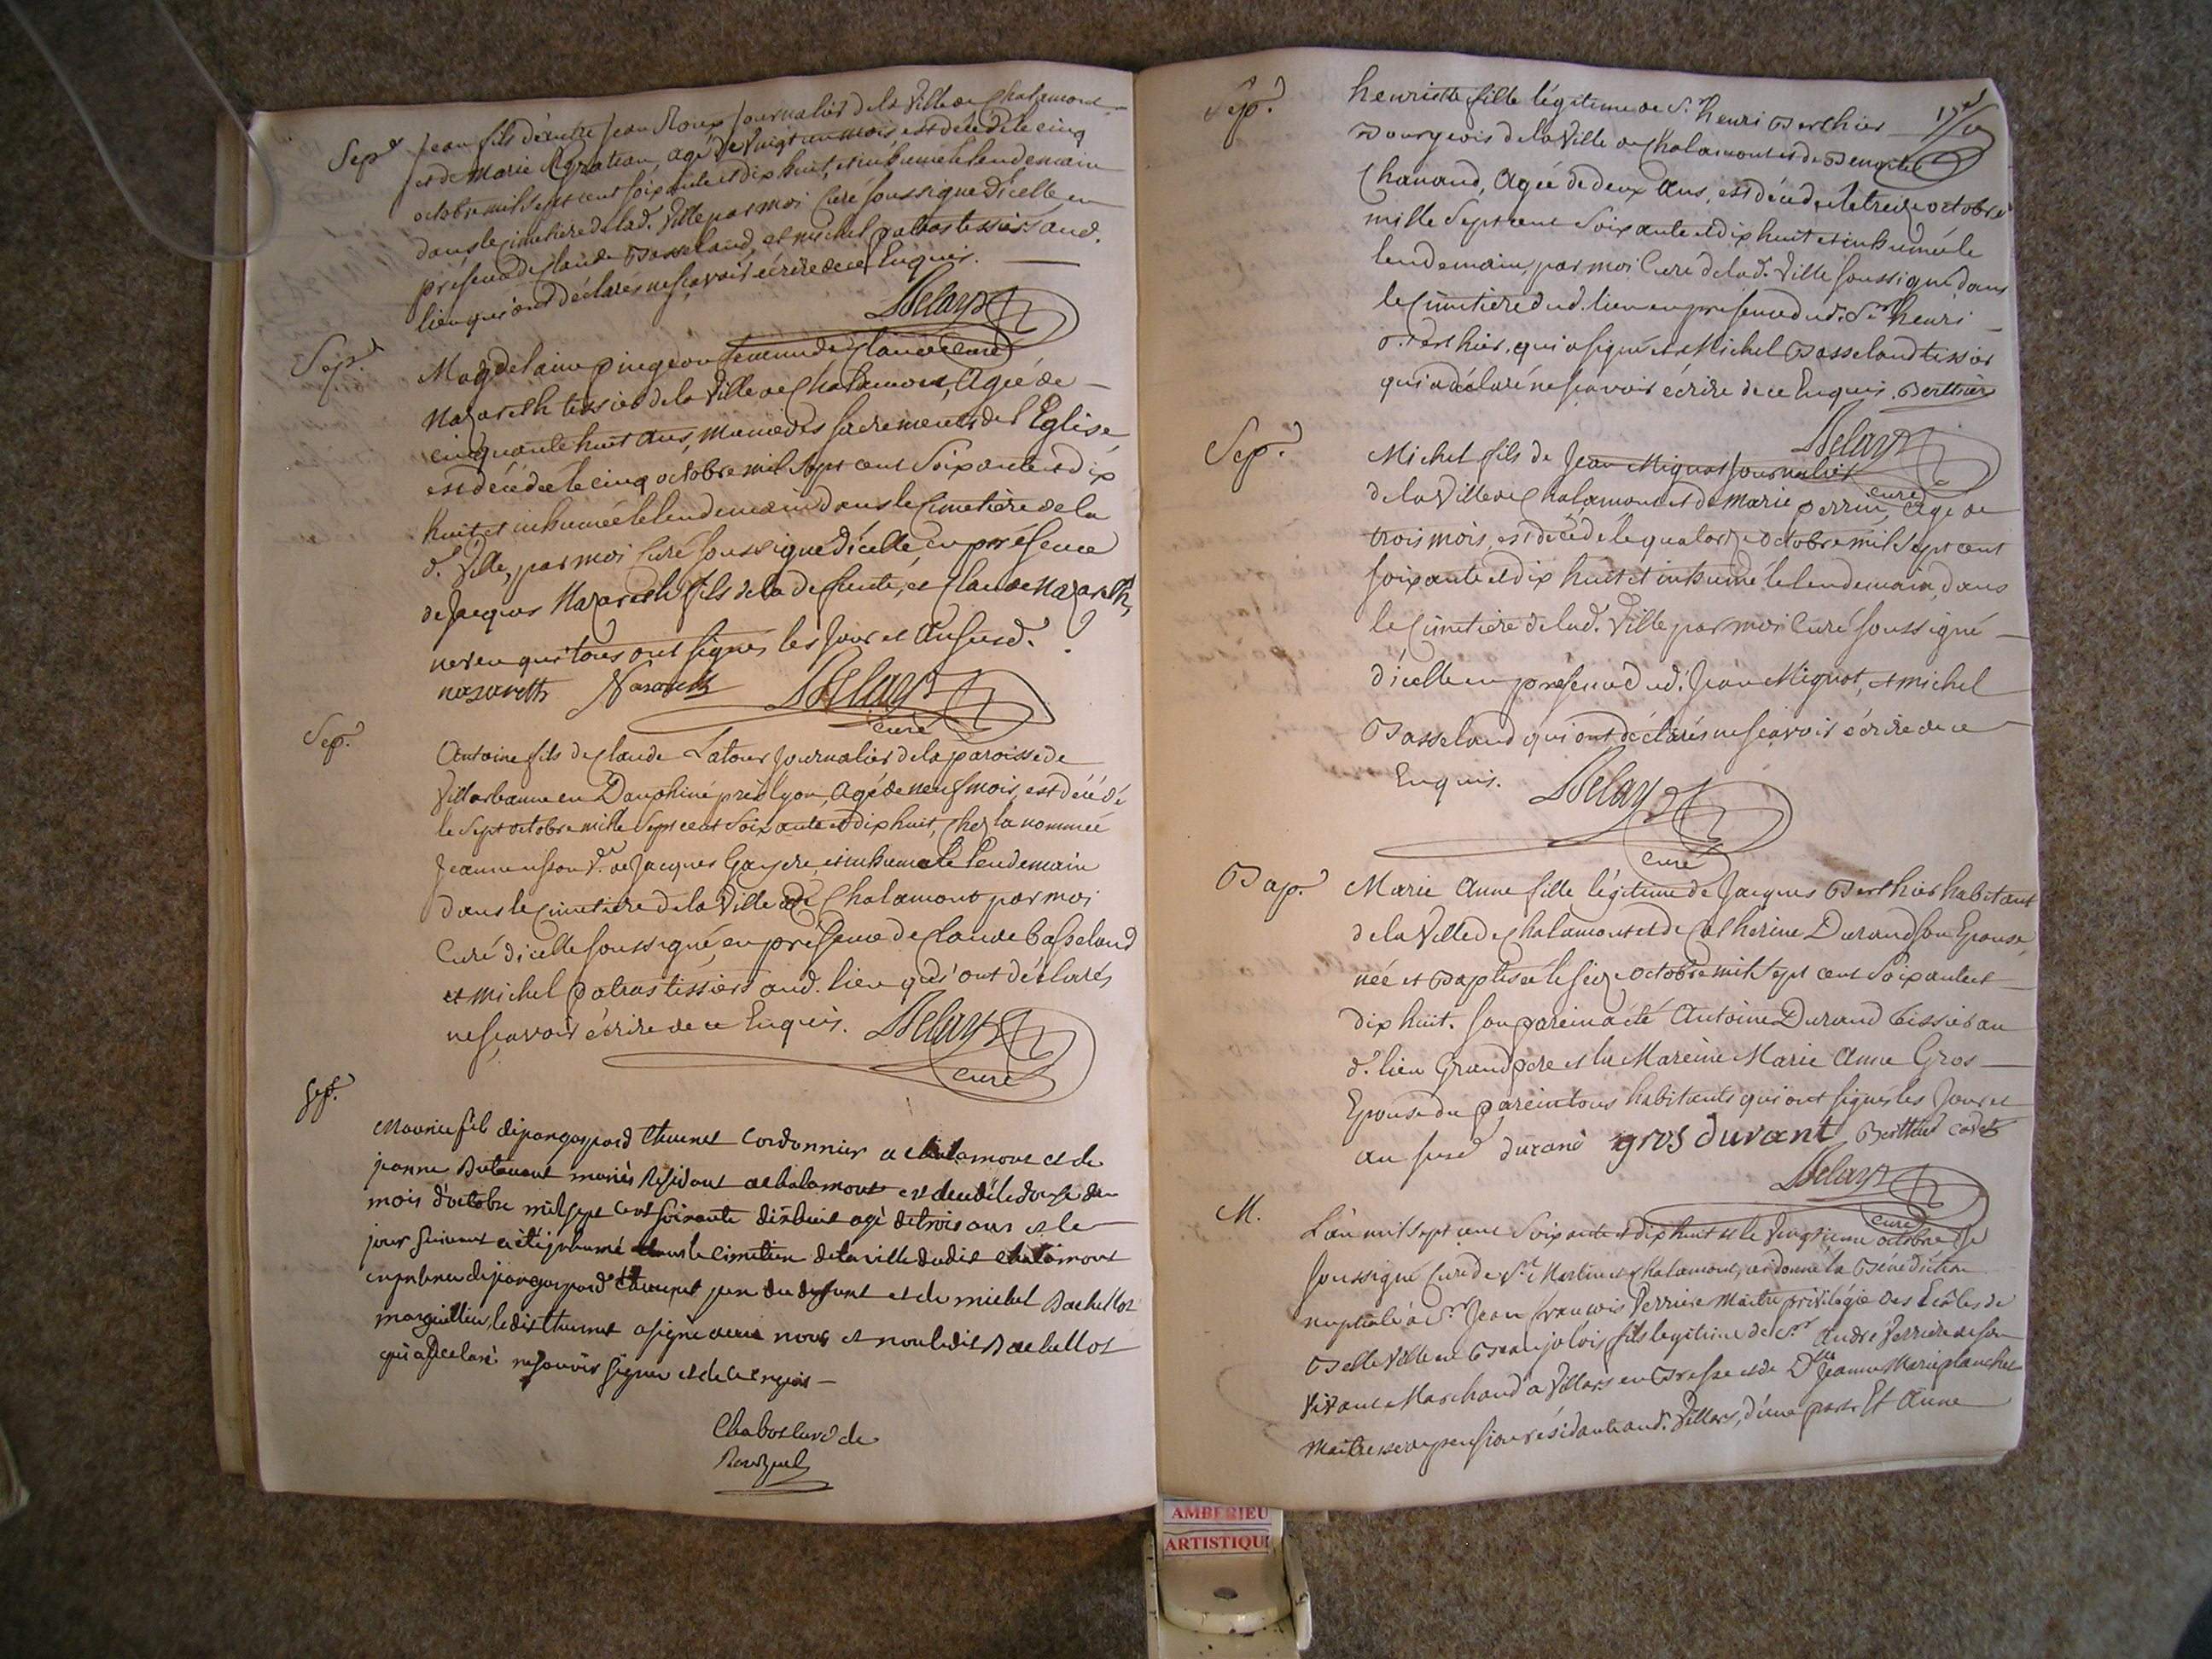 Sep.
Jean fils d'autre Jean Roux Journalier de la Ville de Chalamont
et de Marie agé de Vingt un mois est décédé le cinq
octobre mil sept cent soixante et dix huit, et inhumé le lendemain
dans le Cimetiere de lad. Ville par moi Curé soussigné d'icelle, en
présence de Claude Basseland, et michel patras tessiers aud.
lieu qui ont déclarés ne sçavoir écrire de ce Enquis.
Delay
curé
Sep.
Magdelaine pingeon femme de Claude
Nazareth tessier de la Ville de Chalamont, Agée de
cinquante huit ans, munie des sacrements de l'Eglise
est décédée le cinq octobre mil sept cent soixante et dix
huit et inhumée le lendemain dans le Cimetière de la
d. Ville, par moi Curé soussigné d'icelle en présence
de Jacques Nazareth fils de la defunte, et Claude Nazareth,
neveu qui tous ont signés les Jour et An susd.
nazareth Nazareth Delay
curé
Sep.
Antoine fils de Claude Latour Journalier de la paroisse de
Villarbanne en Dauphiné près lyon, Agé de neuf mois, est décédé
le sept octobre mille sept cent soixante et dix huit, chez la nommée
Jeanne v.e de Jacques et inhumé le lendemain
dans le Cimetiere de la Ville de Chalamont par moi
Curé d'icelle soussigné, en présence de Claude basseland
et michel patras tissiers aud. lieu qui ont déclarés
ne sçavoir écrire de ce Enquis. Delay
curé
Sep.
Maurice fils de jean gaspard thevenet Cordonnier a chalamont et de
jeanne mariés Residant a chalamont est decedé le douze du
mois d'octobre mil sept cent soixante dixhuit agé de trois ans et le
jour suivant a été inhumé dans le cimetiere de la ville dudit chalamont
en presence de jean gaspard thevenet pere du defunt et de michel Bachellot
marguillier, ledit thevenet a signé avec nous et non ledit Bachellot
qui a declaré ne savoir signer et de ce enquis
Chabot curé de
Sep.
henriette fille légitime de S.r henri Berthier
Bourgeois de la Ville de Chalamont et de
Chanand, Agée de deux Ans, est décédée le treize octobre
mille sept cent soixante et dix huit et inhumée le
lendemain, par moi Curé de lad. Ville soussigné dans
le Cimetiere dud. lieu en présence dud. S.r henri
Berthier, qui a signé et Michel Basseland tessier
qui a déclaré ne sçavoir écrire de ce Enquis. Berthier
Delay
curé
Sep.
Michel fils de Jean Mignot Journalier
de la Ville de Chalamont et de marie perrin, Agé de
trois mois, est décédé le quatorze octobre mil sept cent
soixante et dix huit et inhumé le lendemain, dans
le Cimetiere de lad. Ville par moi Curé soussigné
d'icelle en présence dud. Jean Mignot, et michel
Basseland qui ont déclarés ne sçavoir écrire de ce
Enquis. Delay
curé
Bap.
Marie Anne fille légitime de Jacques Berthier habitant
de la Ville de Chalamont et de Catherine Durand son Epouse
née et Baptisée le seize octobre mil sept cent soixante et
dix huit. son parein a été Antoine Durand tissier au
d. lieu Grand pere et la Mareine Marie Anne Gros
Epouse du parein tous habitants qui ont signés les Jour et
an susd durand gros durant Berthier cadet
Delay
curé
M.
L'an mil sept cent soixante et dix huit et le Vingtieme octobre Je
soussigné Curé de S.t Martin de Chalamont, ai donné la Bénédiction
nuptiale à S.r Jean francois Perriere Maitre privilégié des Ecôles de
Belleville en Beaujolois, fils légitime de S.r André Perriere de son
Vivant Marchand a Villars en Bresse et de D.lle Jeanne Marie planchet
Maitresse de pension résidante aud. Villars, d'une part. Et Anne
AMBERIEU
ARTISTIQU